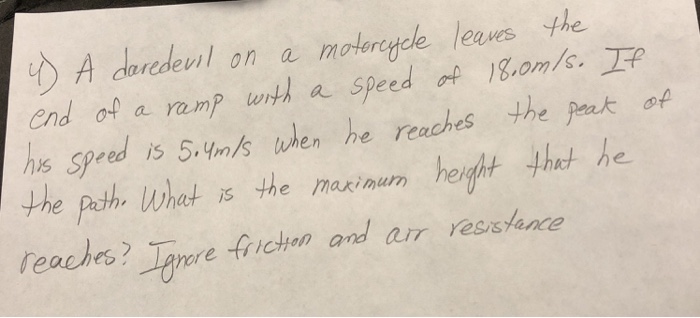 4) A daredevil on a motorcycle leaves the
end of a ramp with a speed of 18.0m/s. If
his speed is 5.4m/s when he reaches the peak of
the path. What is the maximum height that he
reaches? Ignore friction and air resistance